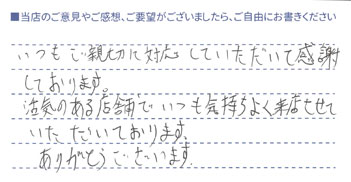 ■当店のご意見やご感想、ご要望がございましたら、ご自由にお書きください
いつもご親切に対応していただいて感謝
しております。
活気のある店舗でいつも気持ちよく来店させて
いただいております。
ありがとうございます。